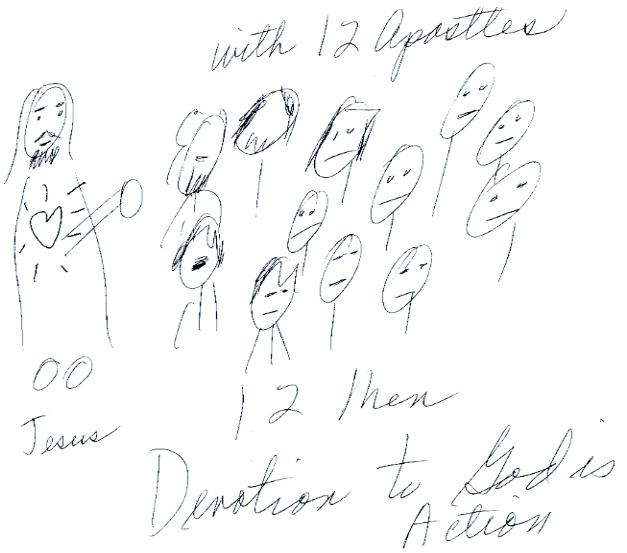 with 12 Apostles
Jesus
12 Men
Devotion to God is
Action